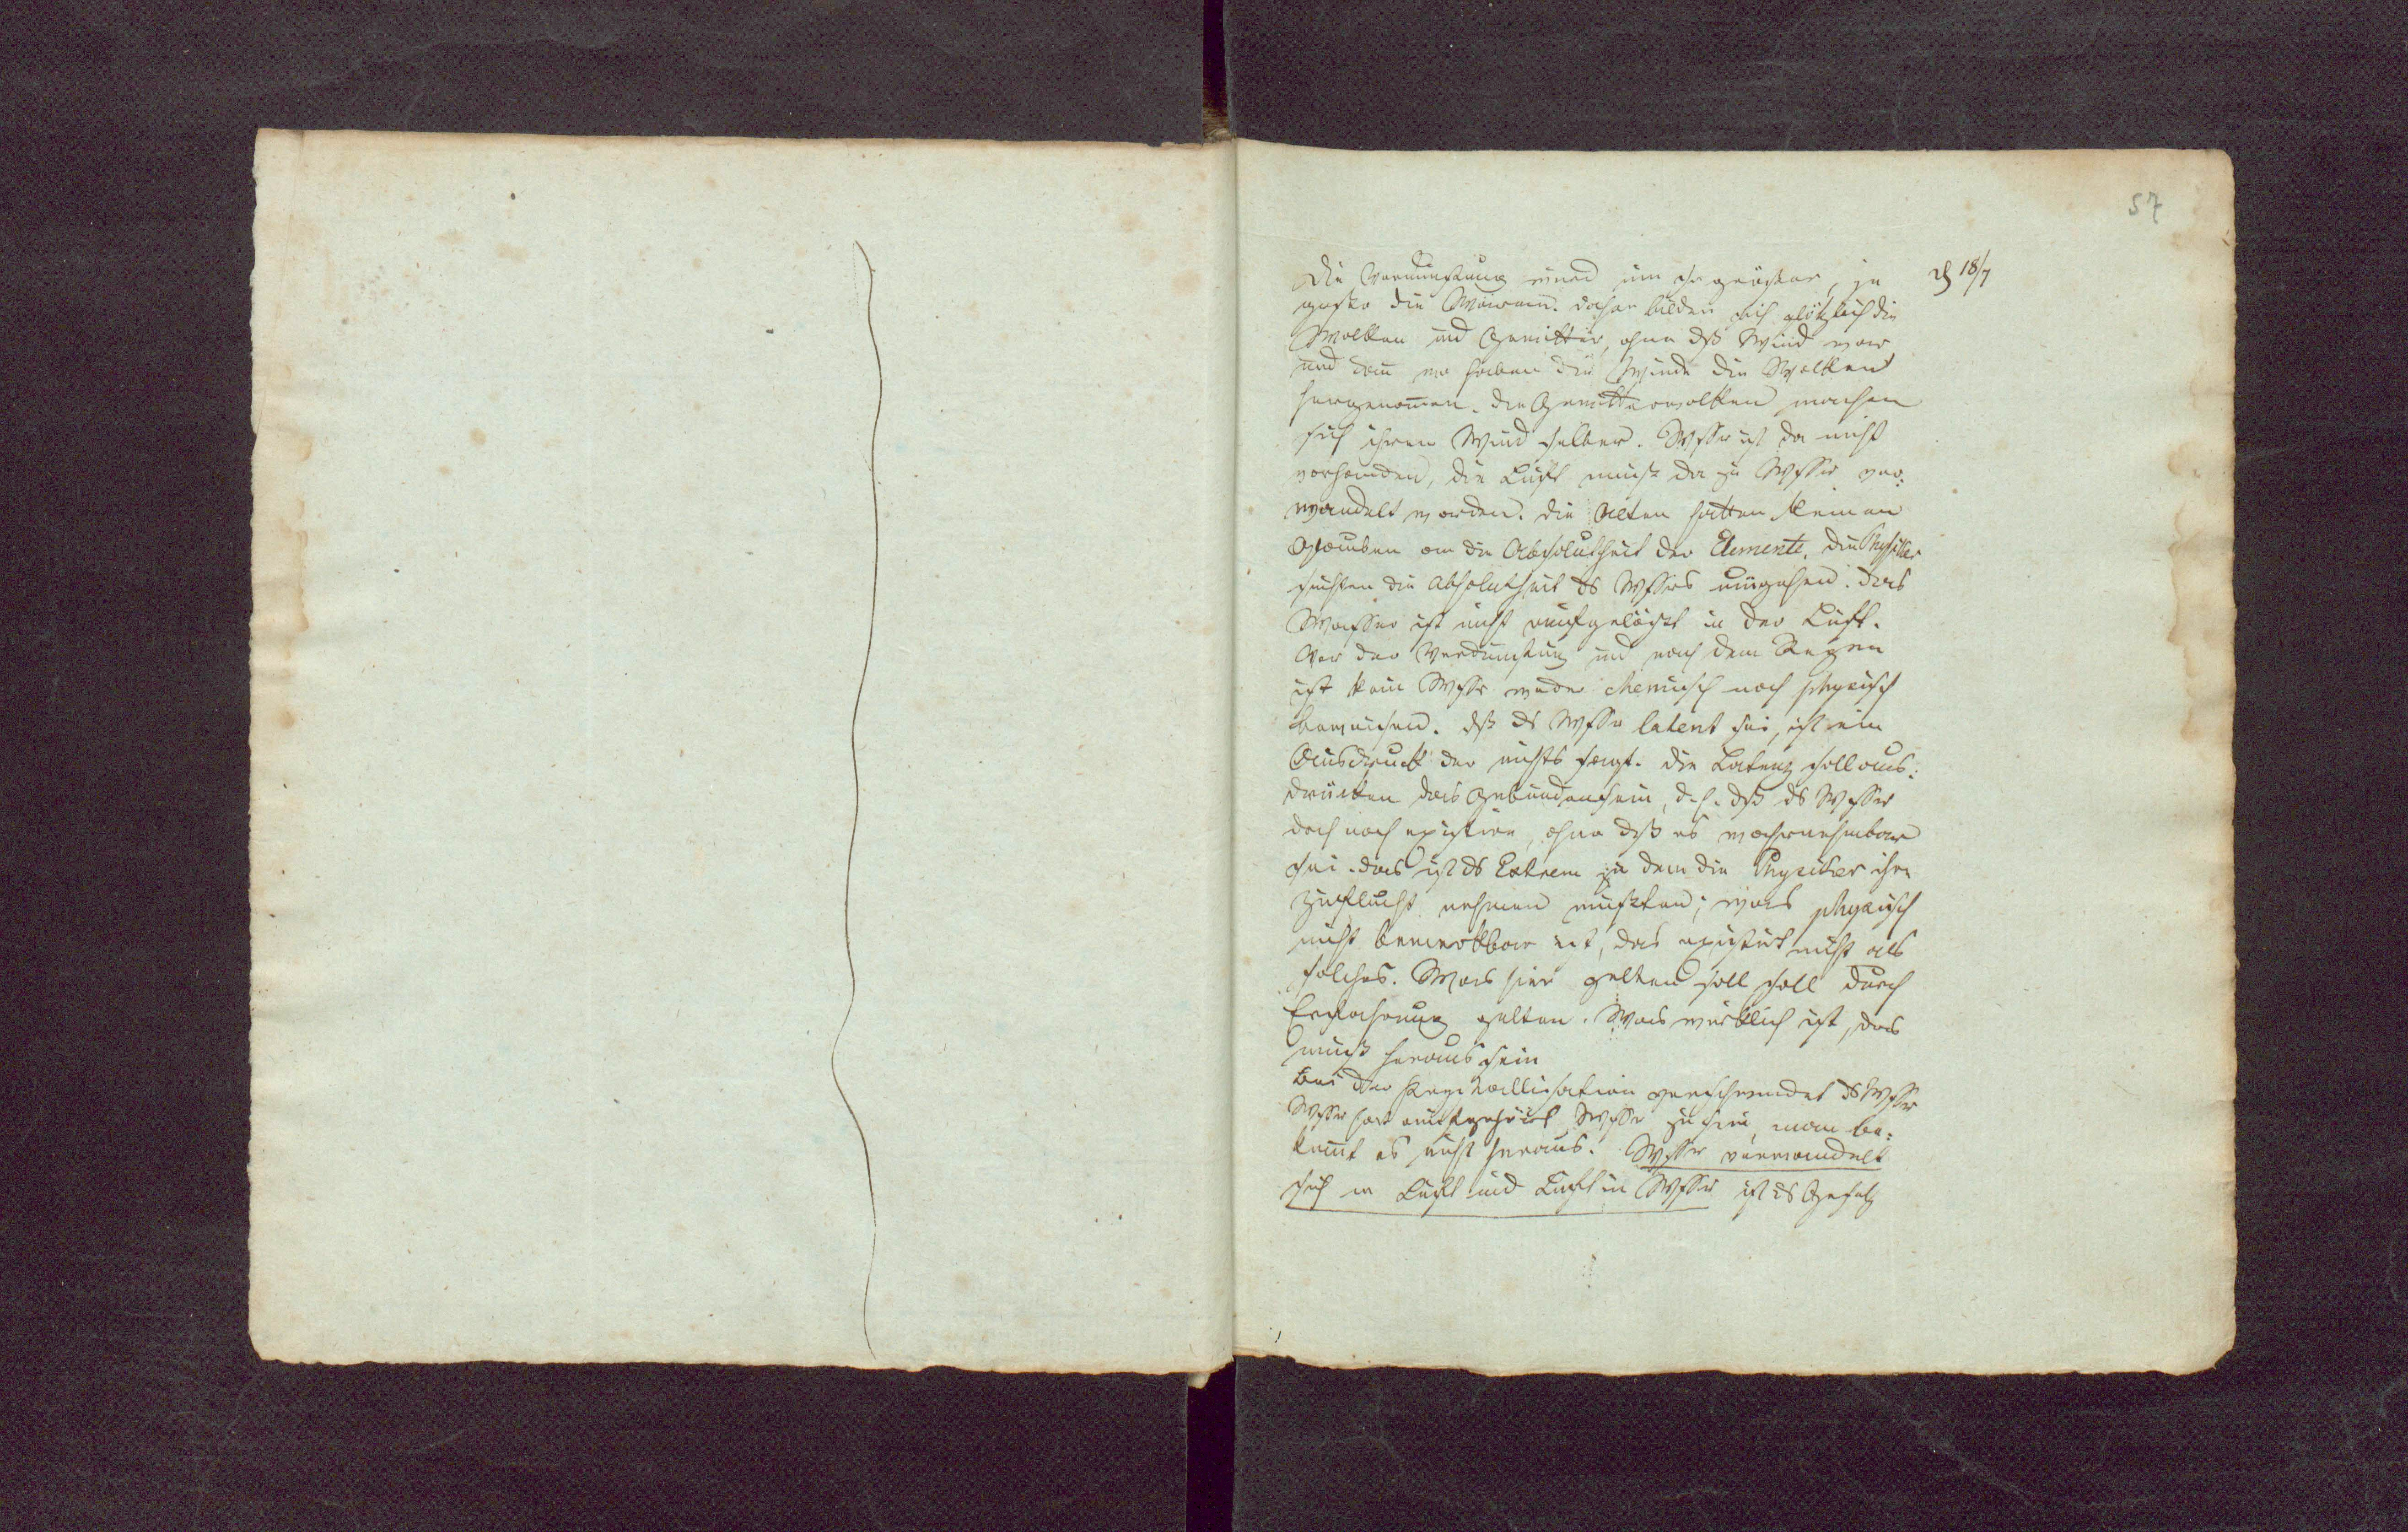 57
♃ 18/7
Die Verdunstung wird um so größer, je
größer die Wärme. Daher bilden sich plötzlich die
Wolken und Gewitter, ohne dß Wind war
und dann wo haben die Winde die Wolken
hergenommen. Die Gewitterwolken machen
sich ihren Wind selber. Wsser ist da nicht
vorhanden, die Luft muß da zu Wsser ver:
wandelt werden. Die Alten hatten keinen
Glauben an die Absolutheit der Elemente. Die Physiker
suchten die Absolutheit ds Wssers umgehen. Das
Wasser ist nicht aufgelößt in der Luft.
Vor der Verdunstung und nach dem Regen
ist kein Wsser weder chemisch noch physisch
bewiesen. dß ds Wsser latent sei, ist ein
Ausdruck der nichts sagt. Die Latenz soll aus:
drücken das Gebundensein, d.h. dß ds Wsser
doch noch existire, ohne dß es wahrnehmbar
sei. das ist ds Extrem zu dem die Physiker ihre
Zuflucht nehmen mußten; was physisch
nicht bemerkbar ist, das existirt nicht als
solches. Was hier gelten soll soll durch
Erfahrung gelten. Was wirklich ist, das
muß heraus sein
Bei der Krystallisation verschwindet ds Wsser
Wsser hat aufgehört Wsser zu sein, man be:
kommt es nicht heraus. Wsser verwandelt
sich in Luft und Luft in Wsser ist ds Gesetz